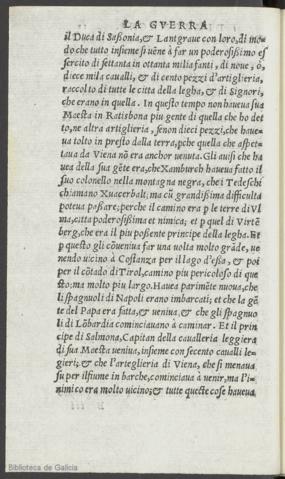 LA GVERRA
il Duca di Sassonia,& Lantgraue con loro,di mo-
do che tutto insieme si uēne à far un poderosissimo es
sercito di settanta in ottanta mila fanti , di noue , ò,
diece mila caualli, & di cento pezzi d'artiglieria,
raccolto di tutte le città della legha,& di Signori,
che erano in quella . In questo tempo non haueua sua
Maestà in Ratisbona piu gente di quella che ho det
to,ne altra artiglieria , senon dieci pezzi, che haue-
ua tolto in presto dalla terra,pche quella che aspet-
taua da Vienna nō era anchor uenuta.Gli auisi che ha
uea della sua gēte era,cheXamburch haueua fatto il
suo colonello nella montagna negra, che i Tedeschi
chiamano Xuacerbalt; ma cū grandissima difficultà
poteua passare;perche il camino era p le terre di Vl
ma,citta poderosissima et nimica; et p quel di Virtē
berg,che era il piu possente principe della legha. Et
p questo gli cōueniua far una uolta molto grāde, ue
nendo uicino à Costanza per il lago d'essa , & poi
per il cōtado di Tirol,camino piu pericoloso di que
sto;ma molto piu largo.Hauea parimēte nuoua,che
li spagnuoli di Napoli erano imbarcati; et che la gē
te del Papa era fatta,& ueniua,& che gli spagnuo
li di Lōbardia cominciauano à caminar. Et il prin
cipe di Salmona,Capitan della caualleria leggiera
di sua Maestà ueniua,insieme con secento caualli le-
gieri; & che l'arteglieria di Viena, che si menaua
su per il fiume in barche,cominciaua à uenir,ma l'i-
nimico era molto uicino;& tutte queste cose haueua
Biblioteca de Galicia